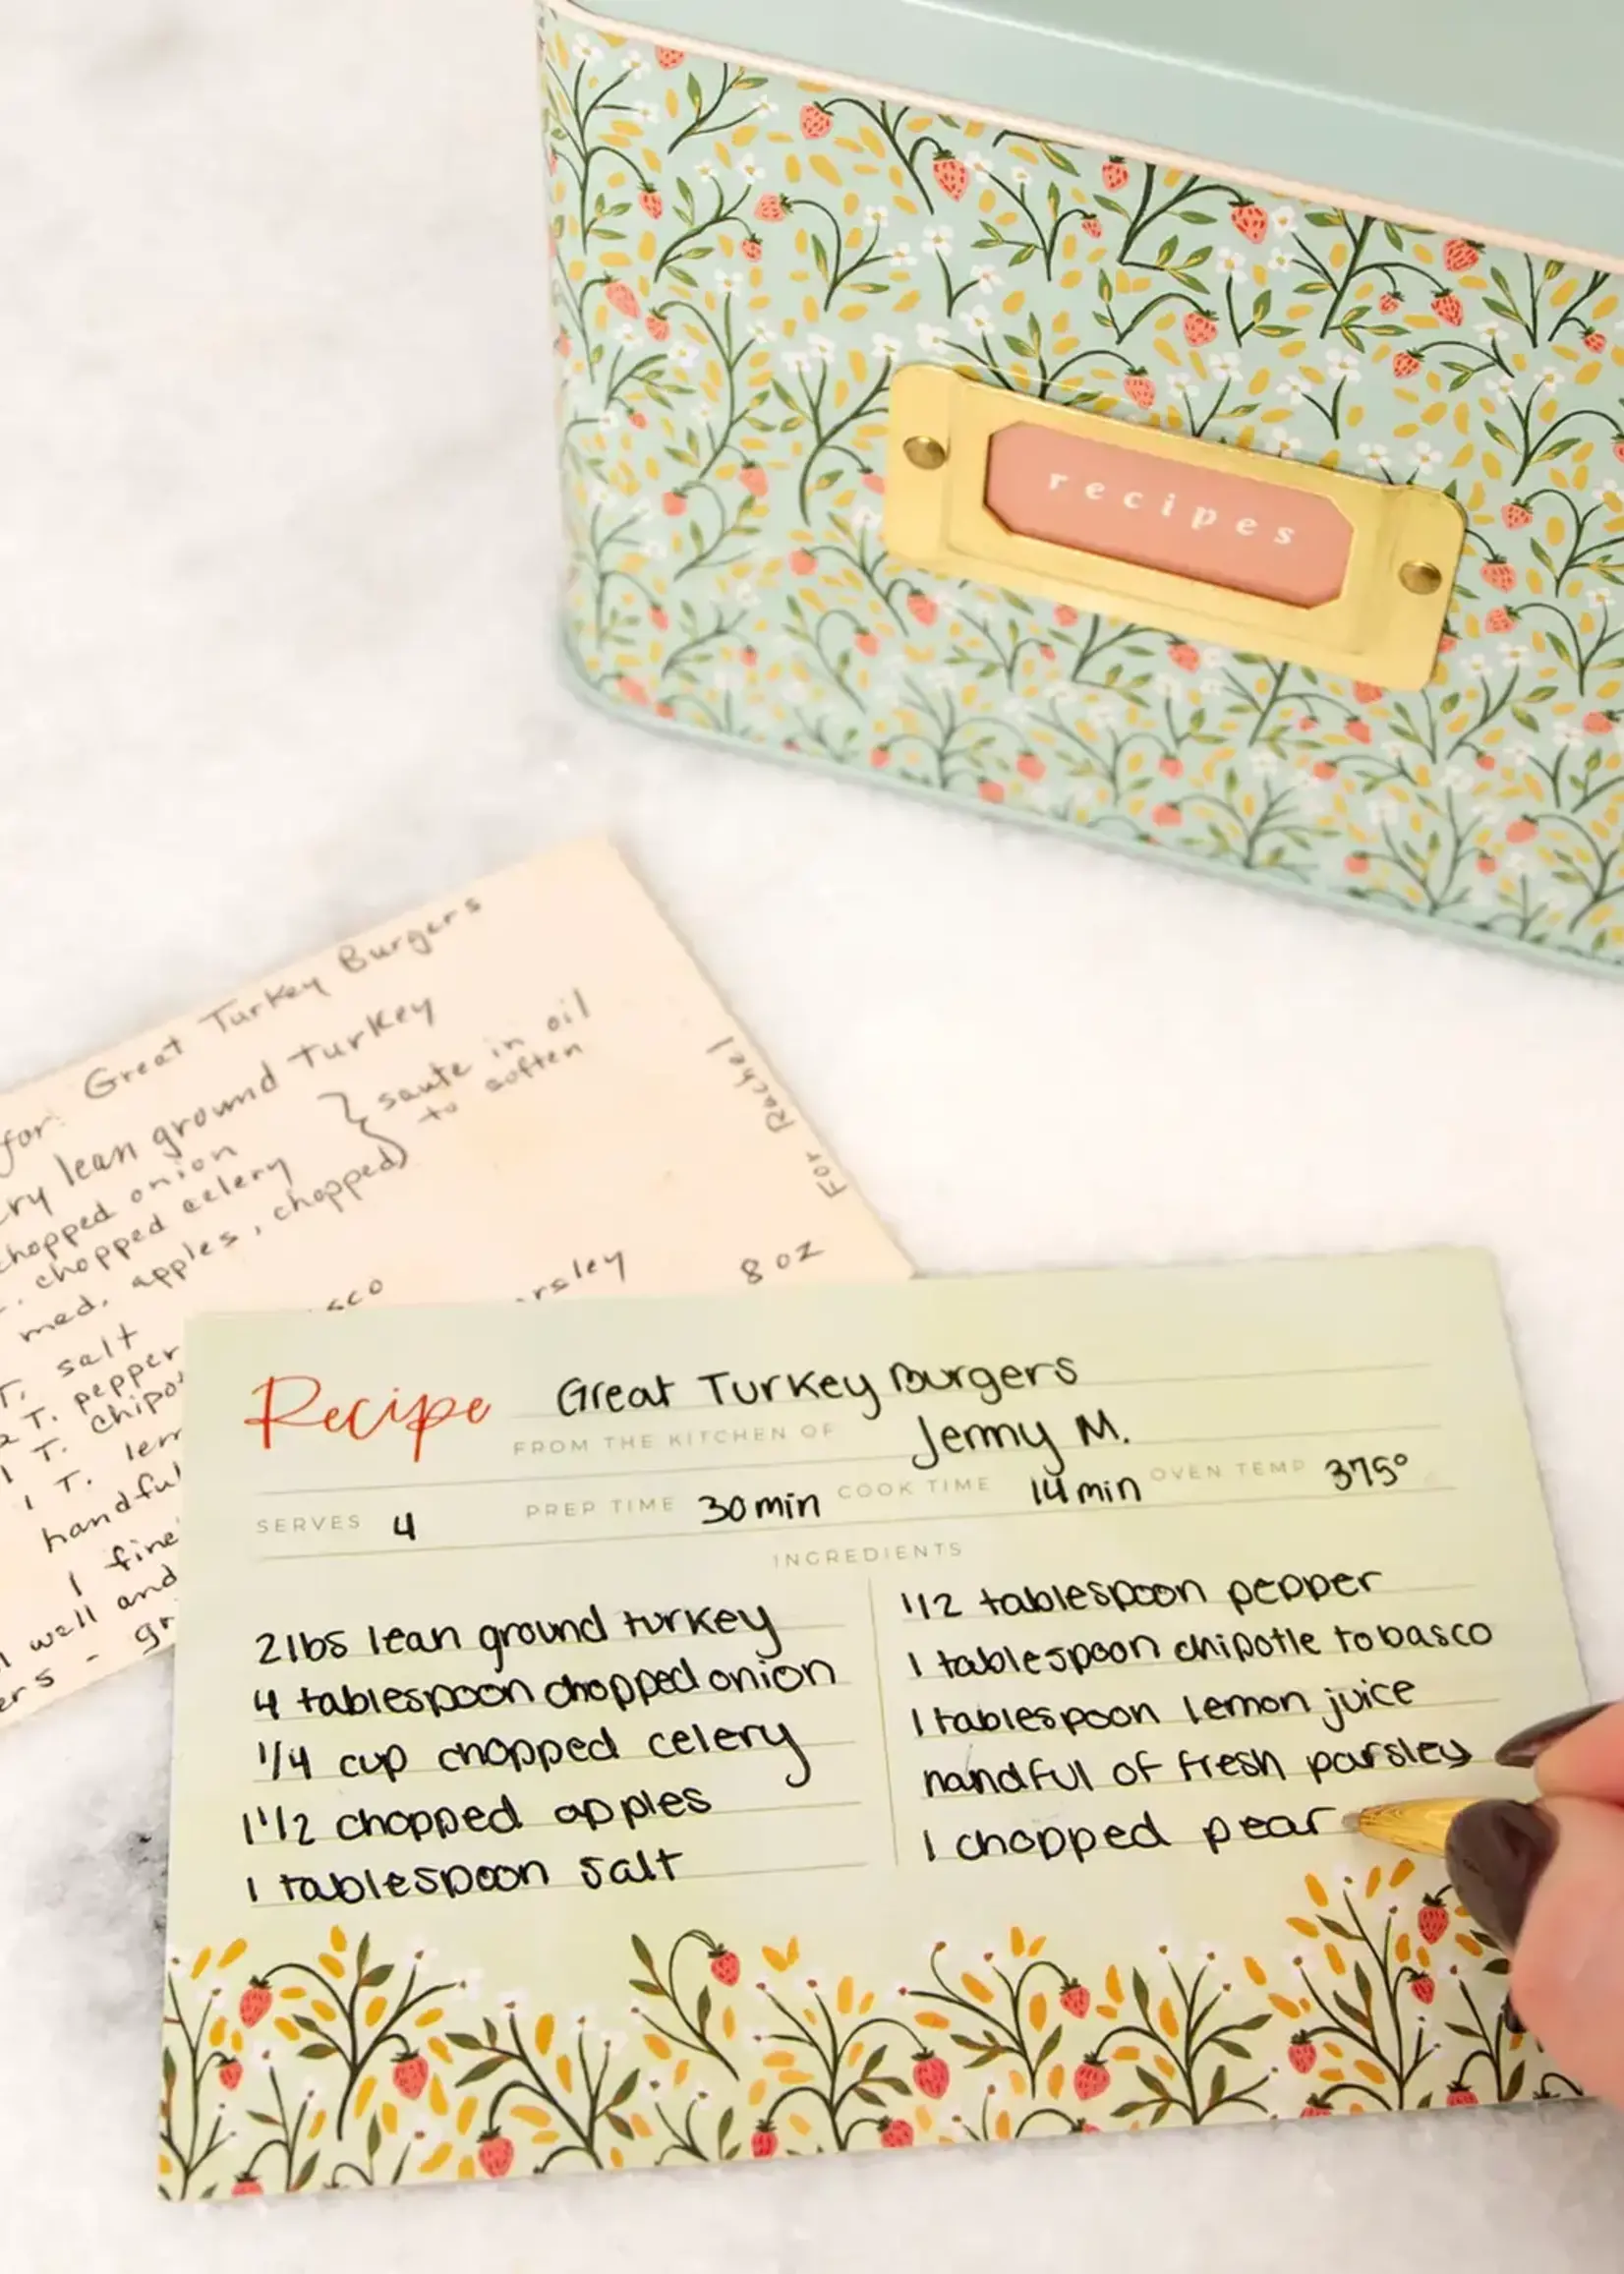 recipes
for: Great Turkey Burgers
lean ground turkey
chopped onion
chopped celery
sante in oil
to soften
med. apples, chopped
For Rachel
8 oz
T. salt
T. pepper
1 T.
1 T.
1
well and
Recipe Great Turkey Burgers
FROM THE KITCHEN OF Jenny M.
SERVES 4 PREP TIME 30 min COOK TIME 14 min OVEN TEMP 375°
INGREDIENTS
2 lbs lean ground turkey
4 tablespoon chopped onion
1/4 cup chopped celery
1 1/2 chopped apples
1 tablespoon salt
1/2 tablespoon pepper
1 tablespoon chipotle tobasco
1 tablespoon lemon juice
handful of fresh parsley
1 chopped pear